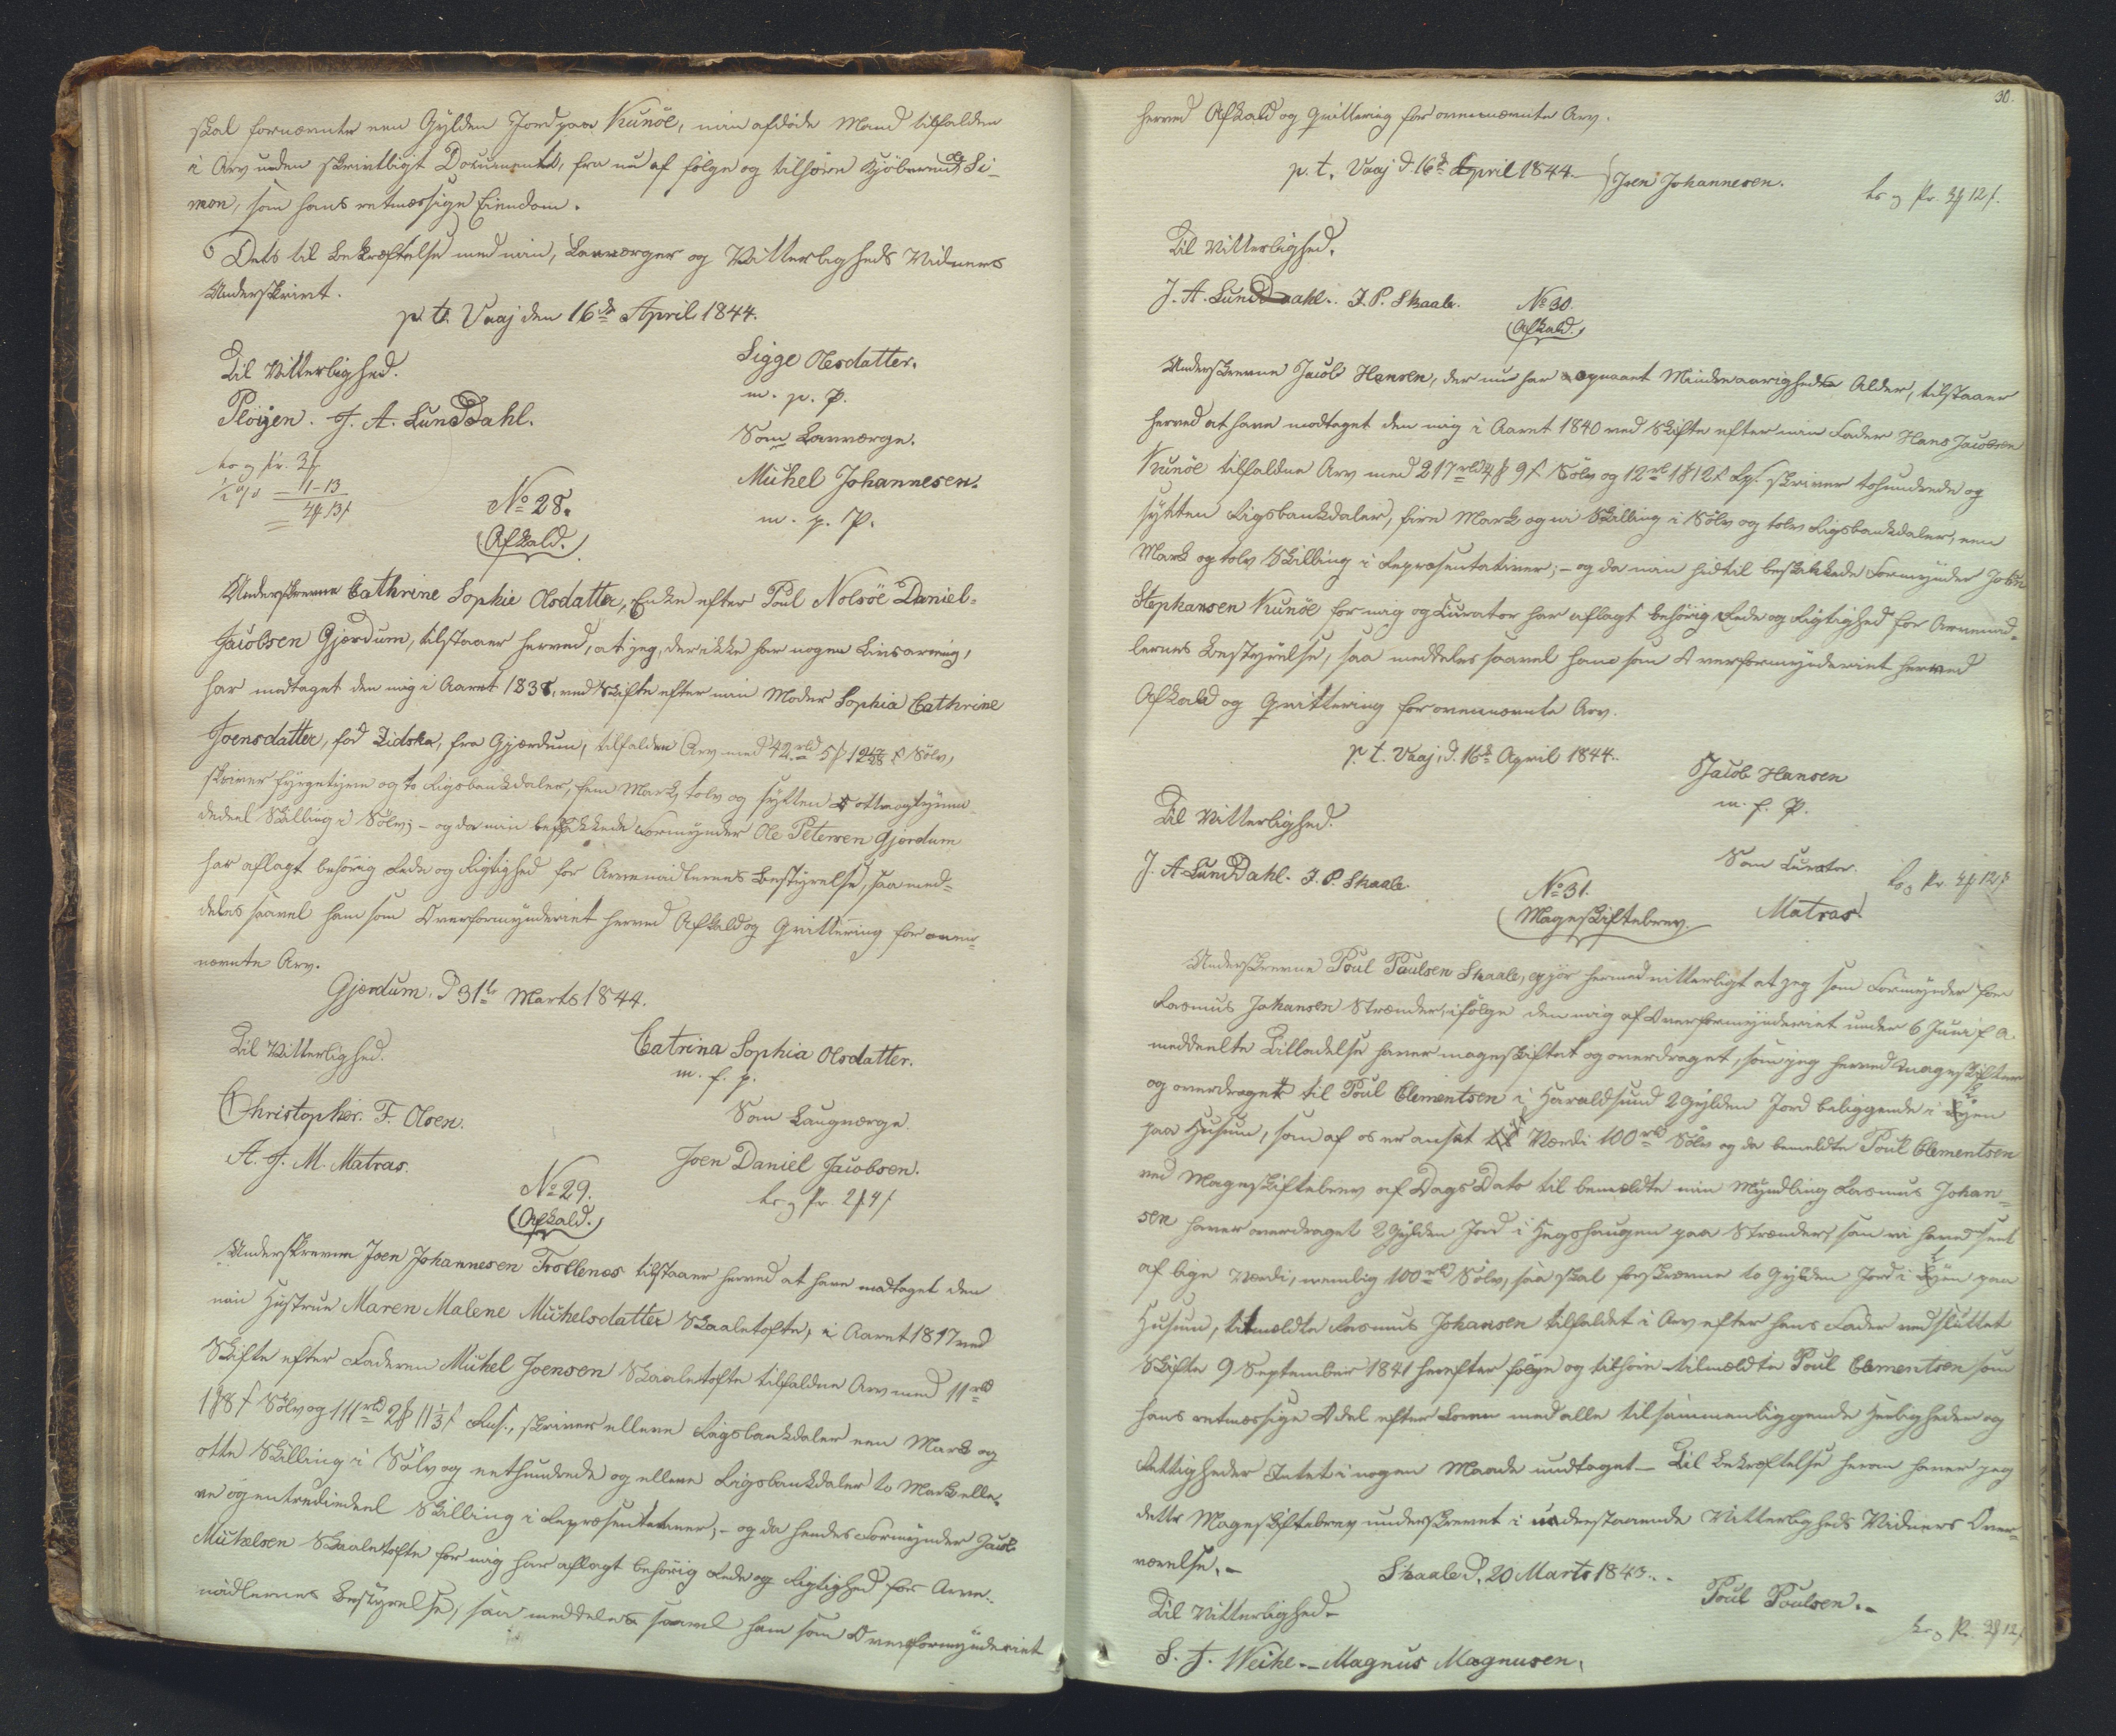 skal fornævnte een Gylden Jord paa Kunöe, min afdöde Mand tilfalden
i Arv uden skrivtligt Document, fra nu af følge og tilhöre Kjöberen Si-
mon, som hans retmæssige Eiendom.
Dets til Bekræftelse med min, Lauværges og Vitterligheds Vidners
Underskrivt.
p. t. Vaaj den 16de April 1844.
Til Vitterlighed.
Sigge Olesdatter.
m. p. P.
Plöyen. J. A. LundDahl.
Som Lauværge.
Michel Johannesen.
m. p. P.
No 28.
Afkald.
Underskrevne Cathrine Sophie Olsdatter, Enke efter Poul Nolsöe Daniel-
Jacobsen Gjærdum, tilstaaer herved, at jeg, der ikke har nogen Livsarving,
har modtaget den mig i Aaret 1838, ved Skifte efter min Moder Sophia Cathrine
Joensdatter, fød Zidska, fra Gjærdum, tilfalden Arv med 42 rbd 5 ß 12 17/28 s Sölv,
skriver fyrgetyve og to Rigsbankdaler, fem Mark, tolv og sytten otteogtyven-
dedeel Skilling i Sölv; - og da min beskikkede Formynder Ole Petersen Gjørdum
har aflagt behörig Rede og Rigtighed for Arvemidlernes Bestyrelse, saa med-
deles saavel ham som Overformynderiet herved Afkald og Qvittering for oven-
nævnte Arv.
Gjærdum, D 31te Marts 1844.
Til Vitterlighed.
Catrina Sophia Olsdatter.
m. f. p.
Christopher. F. Olsen.
Som Laugværge.
A. J. M. Matras.
Joen Daniel Jacobsen.
No 29.
Afkald.
Underskrevne Joen Johannesen Trollenes tilstaaer herved at have modtaget den
min Hustrue Maren Malene Michelsdatter Skaaletofte, i Aaret 1817 ved
Skifte efter Faderen Michel Joensen Skaaletofte tilfaldne Arv med 11 rbd
1 ß 8 s Sölv og 111 rbd 2 ß 11 1/3 s Rep., skriver elleve Rigsbankdaler een Mark og
otte Skilling i Sölv og eethundrede og elleve Rigsbankdaler to Mark elle-
ve og entrediedeel Skilling i Repræsentativer; - og da hendes Formynder Jacob
Michelsen Skaaletofte for mig har aflagt behörig Rede og Rigtighed for Arve-
midlernes Bestyrelse, saa meddeles saavel ham som Overformynderiet
30.
herved Afkald og Qvittering for ovennævnte Arv.
p. t. Vaaj d. 16de April 1844.
Joen Johannesen.
Til Vitterlighed.
J. A. LundDahl. J. P. Skaale.
No 30.
Afkald.
Underskrevne Jacob Hansen, der nu har opnaaet Mindreaarigheds Alder, tilstaaer
herved at have modtaget den mig i Aaret 1840 ved Skifte efter min Fader Hans Jacobsen
Kunöe tilfaldne Arv med 217 rbd 4 ß 9 s Sölv og 12 rb 1 ß 12 s Rp. skriver tohundrede og
sytten Rigsbankdaler, fire Mark og ni Skilling i Sölv og tolv Rigsbankdaler, een
Mark og tolv Skilling i Repræsentativer; - og da min hidtil beskikkede Formynder John
Stephansen Kunöe for mig og Curator har aflagt behörig Rede og Rigtighed for Arvemid-
lernes Bestyrelse, saa meddeles saavel ham som Overformynderiet herved
Afkald og Qvittering for ovennævnte Arv.
p. t. Vaaj, d. 16de April 1844.
Jacob Hansen
m. f. P.
Til Vitterlighed.
Som Curator.
J. A LundDahl. J. P. Skaale.
Matras
No 31.
Mageskiftebrev.
Underskrevne Poul Poulsen Skaale, gjör hermed vitterligt at jeg som Formynder for
Rasmus Johansen Strænder, ifölge den mig af Overformynderiet under 6 Juni f. A.
meddeelte Tilladelse haver mageskiftet og overdraget, som jeg herved mageskifter
og overdraget til Poul Clementsen i Haraldsund 2 Gylden Jord beliggende i Byen
paa Husum, som af os er ansat til Værdi 100 rbd Sölv og da bemeldte Poul Clementsen
ved Mageskiftebrev af Dags Dato til bemeldte min Myndling Rasmus Johan-
sen haver overdraget 2 Gylden Jord i Hegshaugen paa Strænder, som vi have anseet
af lige Værdi, nemlig 100 rbd Sölv, saa skal forskrevne to Gylden Jord i Byen paa
Husum, bemeldte Rasmus Johansen tilfaldet i Arv efter hans Fader ved sluttet
Skifte 9 September 1841 herefter fölge og tilhöre tilmeldte Poul Clementsen som
hans retmæssige Odel efter Loven med alle tilsammenliggende Herligheder og
Rettigheder Intet i nogen Maade undtaget - Til Bekræftelse heraf haver jeg
dette Mageskiftebrev underskrevet i understaaende Vitterligheds Vidners Over-
værelse. -
Skaale D. 20 Marts 1843. -
Poul Poulsen. -
Til Vitterlighed -
S. J. Weihe. - Magnus Magnusen.